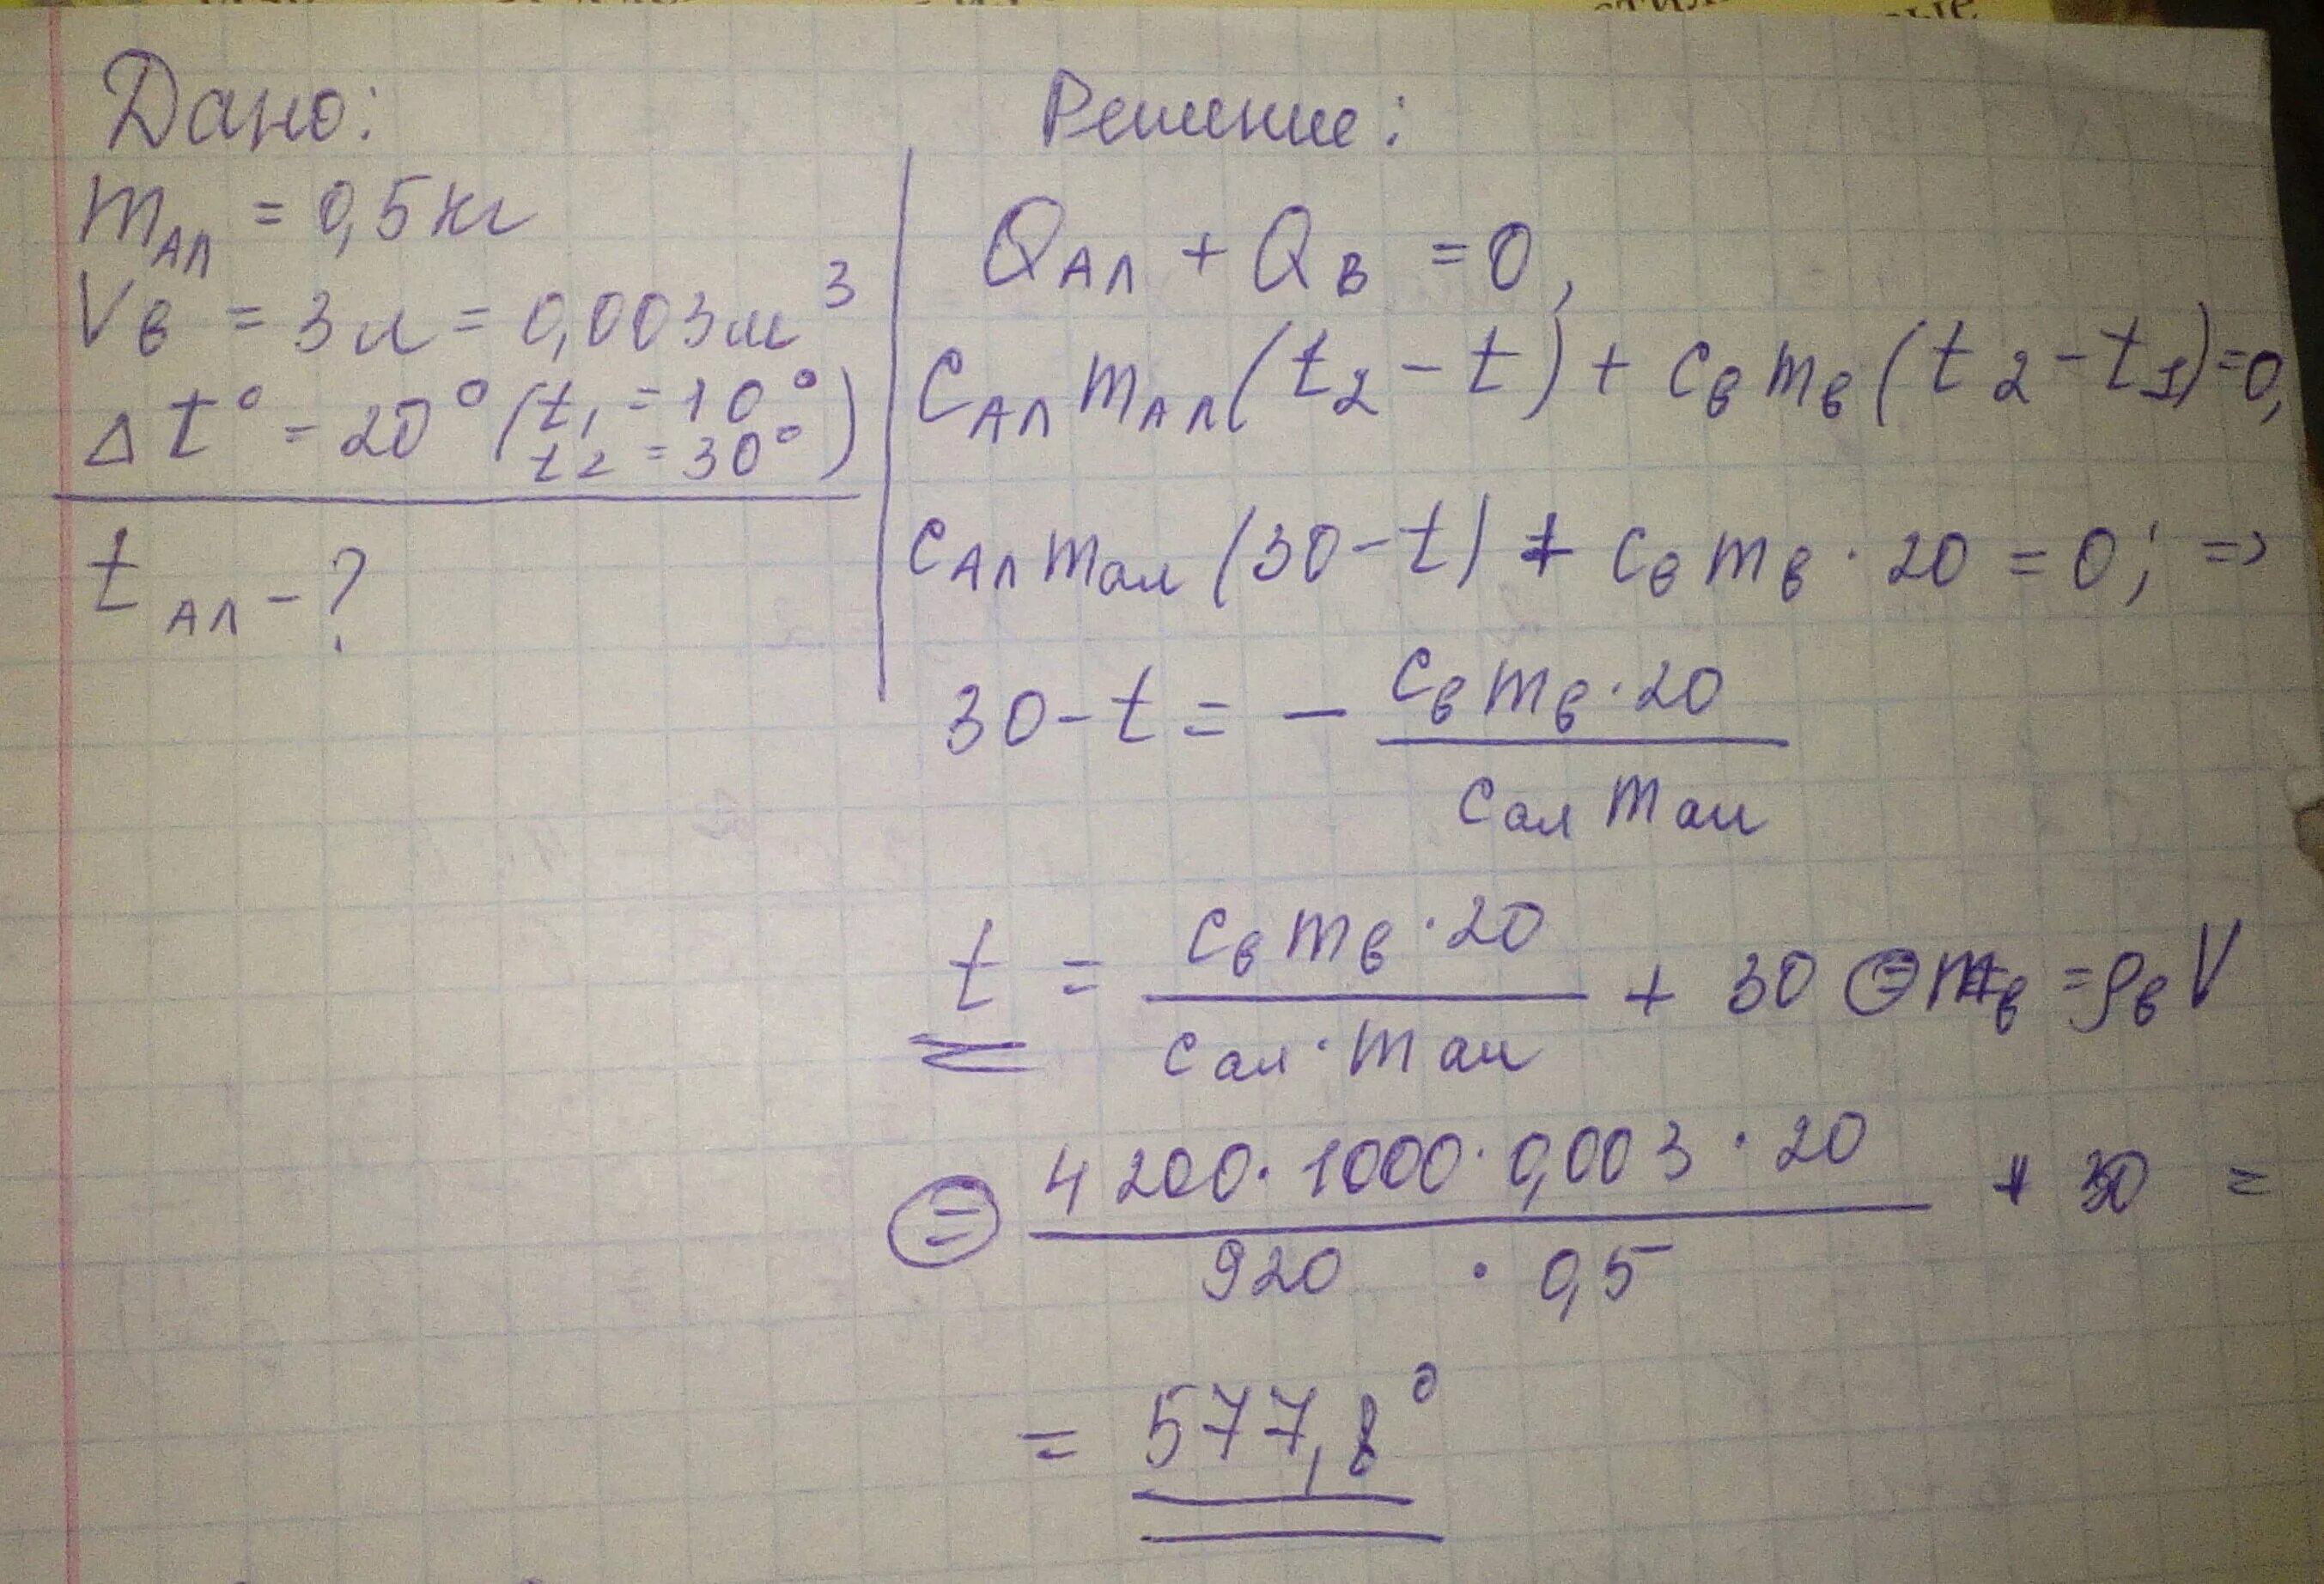 Дано:
m_АЛ = 0,5 кг
V_в = 3 л = 0,003 м³
Δt° = 20° (t₁ = 10°
t₂ = 30°)
t_АЛ - ?
Решение:
Q_АЛ + Q_В = 0,
c_АЛ m_АЛ (t₂ - t) + c_в m_в (t₂ - t₁) = 0,
c_АЛ m_ал (30 - t) + c_в m_в · 20 = 0; =>
30 - t = - \frac{c_в m_в · 20}{c_ал m_ал}
t = \frac{c_в m_в · 20}{c_ал · m_ал} + 30 ⊜ m_в = ρ_в V
⊜ \frac{4200 · 1000 · 0,003 · 20}{920 · 0,5} + 30 =
= 577,8°